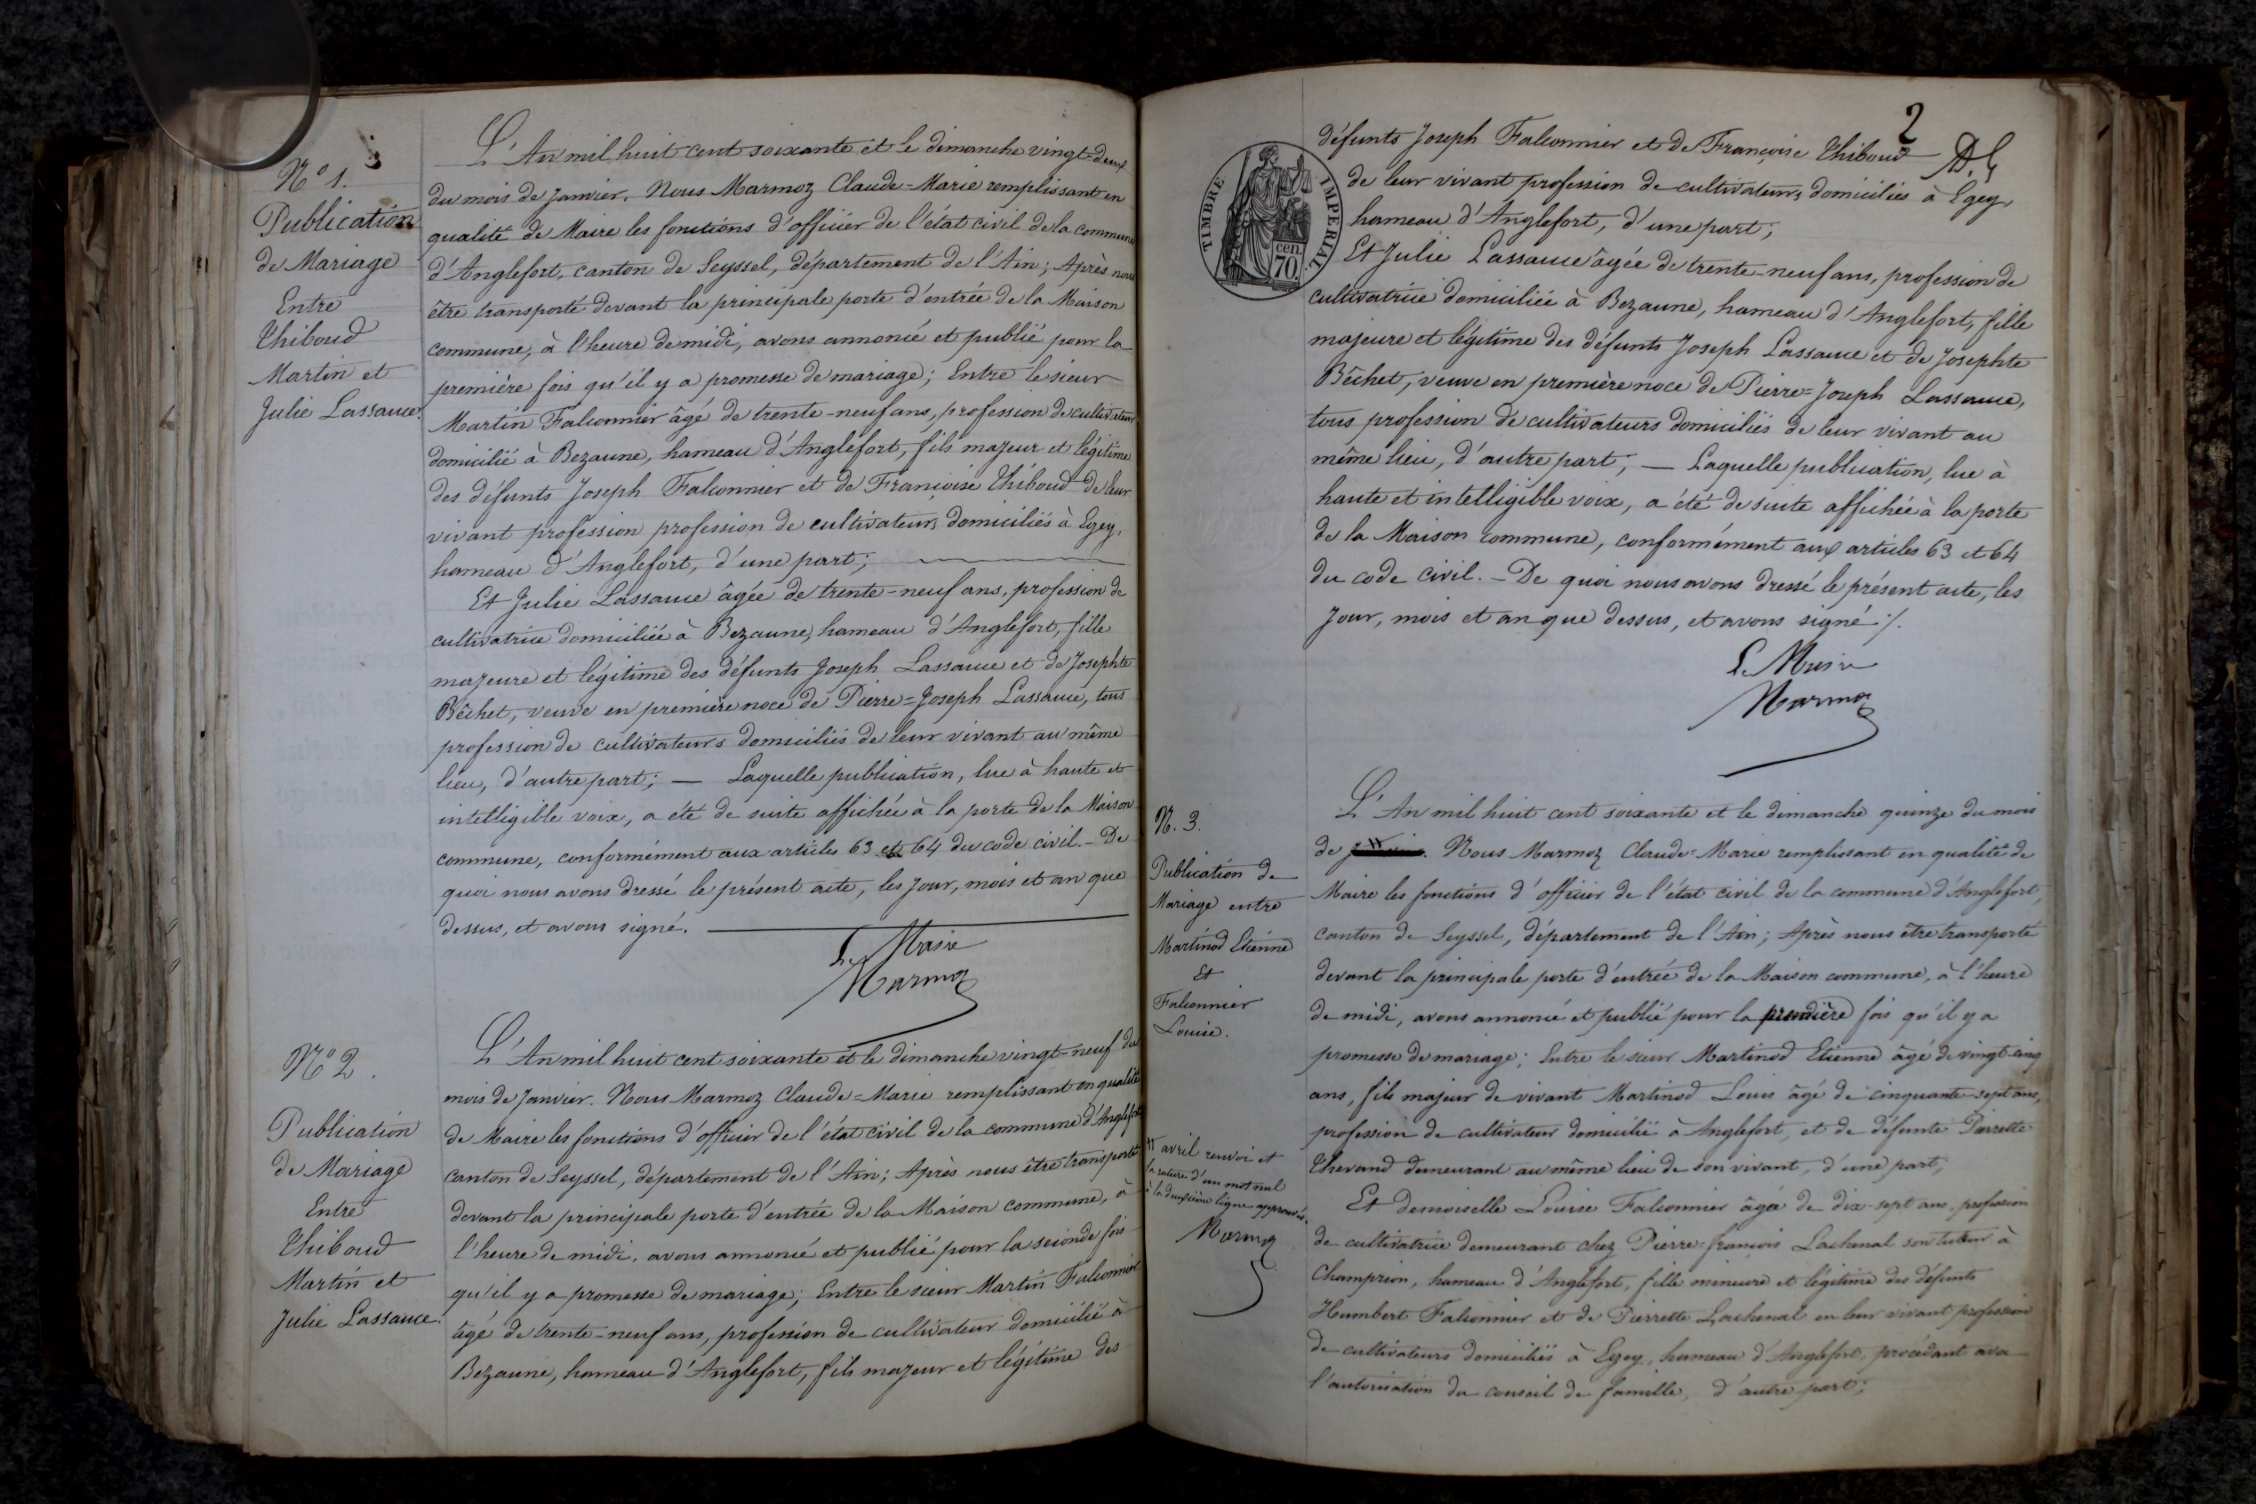 N° 1.
Publication
de Mariage
Entre
Thiboud
Martin et
Julie Lassauce.
L'An mil huit cent soixante et le dimanche vingt-deux
du mois de Janvier. Nous Marmoz Claude=Marie remplissant en
qualité de Maire les fonctions d'officier de l'état civil de la commune
d'Anglefort, canton de Seyssel, département de l'Ain; Après nous
être transporté devant la principale porte d'entrée de la Maison
commune, à l'heure de midi, avons annoncé et publié pour la
première fois qu'il y a promesse de mariage; Entre le sieur
Martin Falconnier âgé de trente-neuf ans, profession de cultivateur
domicilié à Bezaune, hameau d'Anglefort, fils majeur et légitime
des défunts Joseph Falconnier et de Françoise Thiboud de leur
vivant profession profession de cultivateurs domiciliés à Egey,
hameau d'Anglefort, d'une part;
Et Julie Lassauce âgée de trente-neuf ans, profession de
cultivatrice domiciliée à Bezaune, hameau d'Anglefort, fille
majeure et légitime des défunts Joseph Lassauce et de Josephte
Bêchet, veuve en première noce de Pierre=Joseph Lassauce, tous
profession de cultivateurs domiciliés de leur vivant au même
lieu, d'autre part; — Laquelle publication, lue à haute et
intelligible voix, a été de suite affichée à la porte de la Maison
commune, conformément aux articles 63 et 64 du code civil. — De
quoi nous avons dressé le présent acte, les Jour, mois et an que
dessus, et avons signé.
Le Maire
Marmoz
N° 2.
Publication
de Mariage
Entre
Thiboud
Martin et
Julie Lassauce.
L'An mil huit cent soixante et le dimanche vingt-neuf du
mois de Janvier. Nous Marmoz Claude=Marie remplissant en qualité
de Maire les fonctions d'officier de l'état civil de la commune d'Anglefort
canton de Seyssel, département de l'Ain; Après nous être transporté
devant la principale porte d'entrée de la Maison commune, à
l'heure de midi, avons annoncé et publié pour la seconde fois
qu'il y a promesse de mariage; Entre le sieur Martin Falconnier
âgé de trente-neuf ans, profession de cultivateur domicilié à
Bezaune, hameau d'Anglefort, fils majeur et légitime des
2
TIMBRE IMPERIAL
cen. 70
défunts Joseph Falconnier et de Françoise Thiboud
de leur vivant profession de cultivateurs domiciliés à Egey,
hameau d'Anglefort, d'une part;
Et Julie Lassauce âgée de trente-neuf ans, profession de
cultivatrice domiciliée à Bezaune, hameau d'Anglefort, fille
majeure et légitime des défunts Joseph Lassauce et de Josephte
Bêchet, veuve en première noce de Pierre=Joseph Lassauce,
tous profession de cultivateurs domiciliés de leur vivant au
même lieu, d'autre part; — Laquelle publication, lue à
haute et intelligible voix, a été de suite affichée à la porte
de la Maison commune, conformément aux articles 63 et 64
du code civil. — De quoi nous avons dressé le présent acte, les
Jour, mois et an que dessus, et avons signé ./.
Le Maire
Marmoz
N. 3.
Publication de
Mariage entre
Martinod Etienne
Et
Falconnier
Louise.
L'An mil huit cent soixante et le dimanche quinze du mois
de. Nous Marmoz Claude=Marie remplissant en qualité de
Maire les fonctions d'officier de l'état civil de la commune d'Anglefort,
canton de Seyssel, département de l'Ain; Après nous être transporté
devant la principale porte d'entrée de la Maison commune, à l'heure
de midi, avons annoncé et publié pour la première fois qu'il y a
promesse de mariage; Entre le sieur Martinod Etienne âgé de vingt-cinq
ans, fils majeur de vivant Martinod Louis âgé de cinquante-sept ans,
profession de cultivateur domicilié à Anglefort, et de défunte Pierrette
Thevand demeurant au même lieu de son vivant, d'une part;
Et demoiselle Louise Falconnier âgée de dix-sept ans, profession
de cultivatrice demeurant chez Pierre-françois Lachenal son tuteur à
Champrion, hameau d'Anglefort, fille mineure et légitime des défunts
Humbert Falconnier et de Pierrette Lachenal en leur vivant profession
de cultivateurs domiciliés à Egey, hameau d'Anglefort, procédant avec
l'autorisation du conseil de famille, d'autre part;
avril renvoi et
la rature d'un mot nul
à la deuxième ligne approuvés.
Marmoz